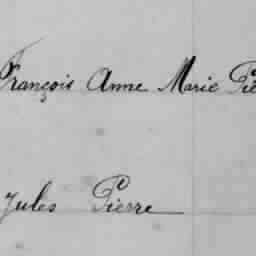 François Anne Marie Pie
Jules Pierre